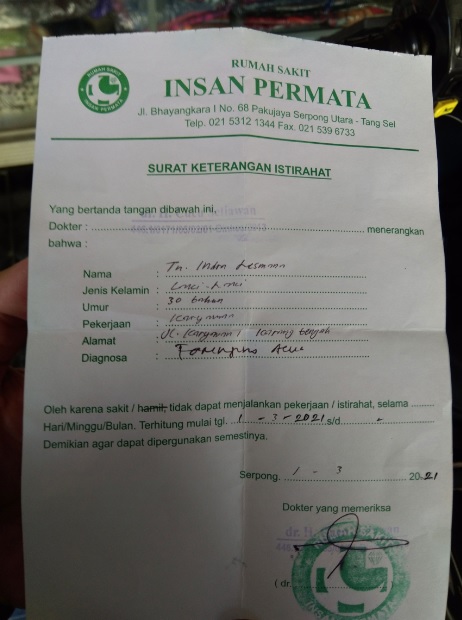 RUMAH SAKIT
INSAN PERMATA
RUMAH SAKIT
INSAN PERMATA
Jl. Bhayangkara I No. 68 Pakujaya Serpong Utara - Tang Sel
Telp. 021 5312 1344 Fax. 021 539 6733
SURAT KETERANGAN ISTIRAHAT
Yang bertanda tangan dibawah ini,
Dokter : menerangkan
bahwa :
Nama : Tn. Indra Lesmana
Jenis Kelamin : Laki-Laki
Umur : 30 tahun
Pekerjaan : Karyawan
Alamat : Jl. tengah
Diagnosa :
Oleh karena sakit / hamil, tidak dapat menjalankan pekerjaan / istirahat, selama
Hari/Minggu/Bulan. Terhitung mulai tgl. 1 - 3 - 2021 s/d -
Demikian agar dapat dipergunakan semestinya.
Serpong, 1 - 3 2021
Dokter yang memeriksa
( dr.